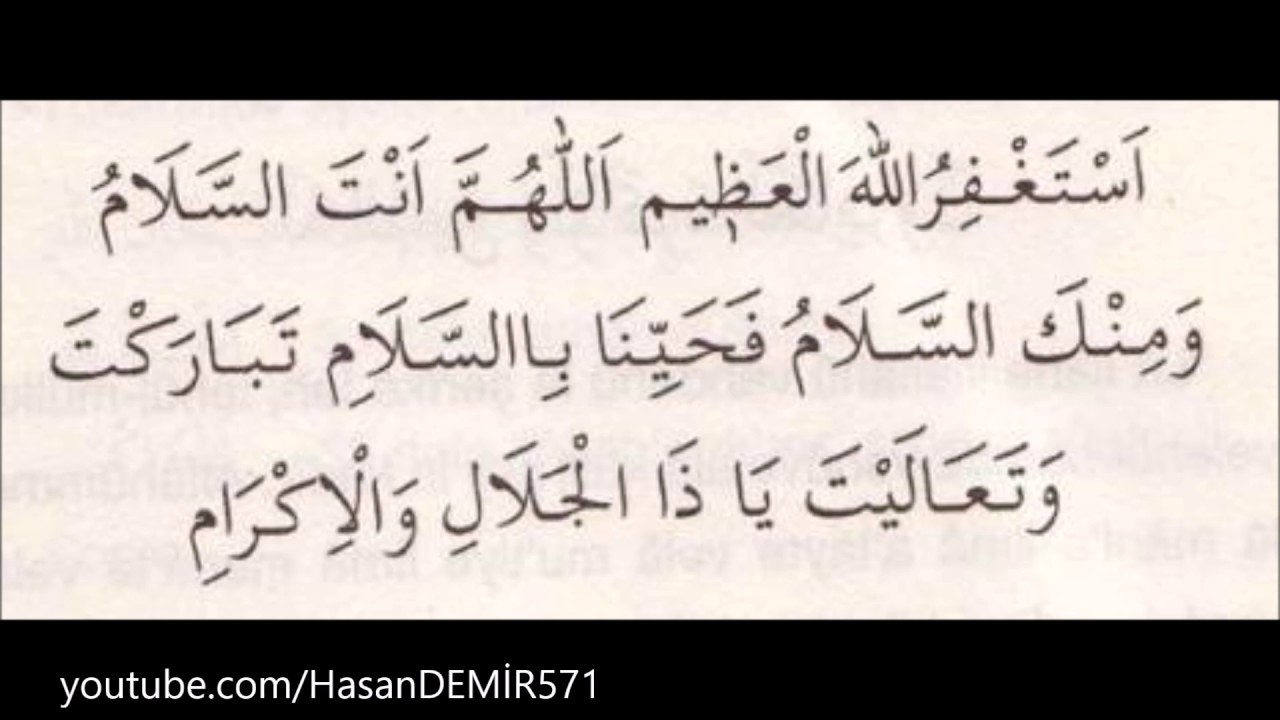 اَسْتَغْفِرُاللّٰهَ الْعَظٖيم اَللّٰهُمَّ اَنْتَ السَّلَامُ
وَمِنْكَ السَّلَامُ فَحَيِّنَا بِاالسَّلَامِ تَبَارَكْتَ
وَتَعَالَيْتَ يَا ذَا الْجَلَالِ وَالْاِكْرَامِ
youtube.com/HasanDEMİR571